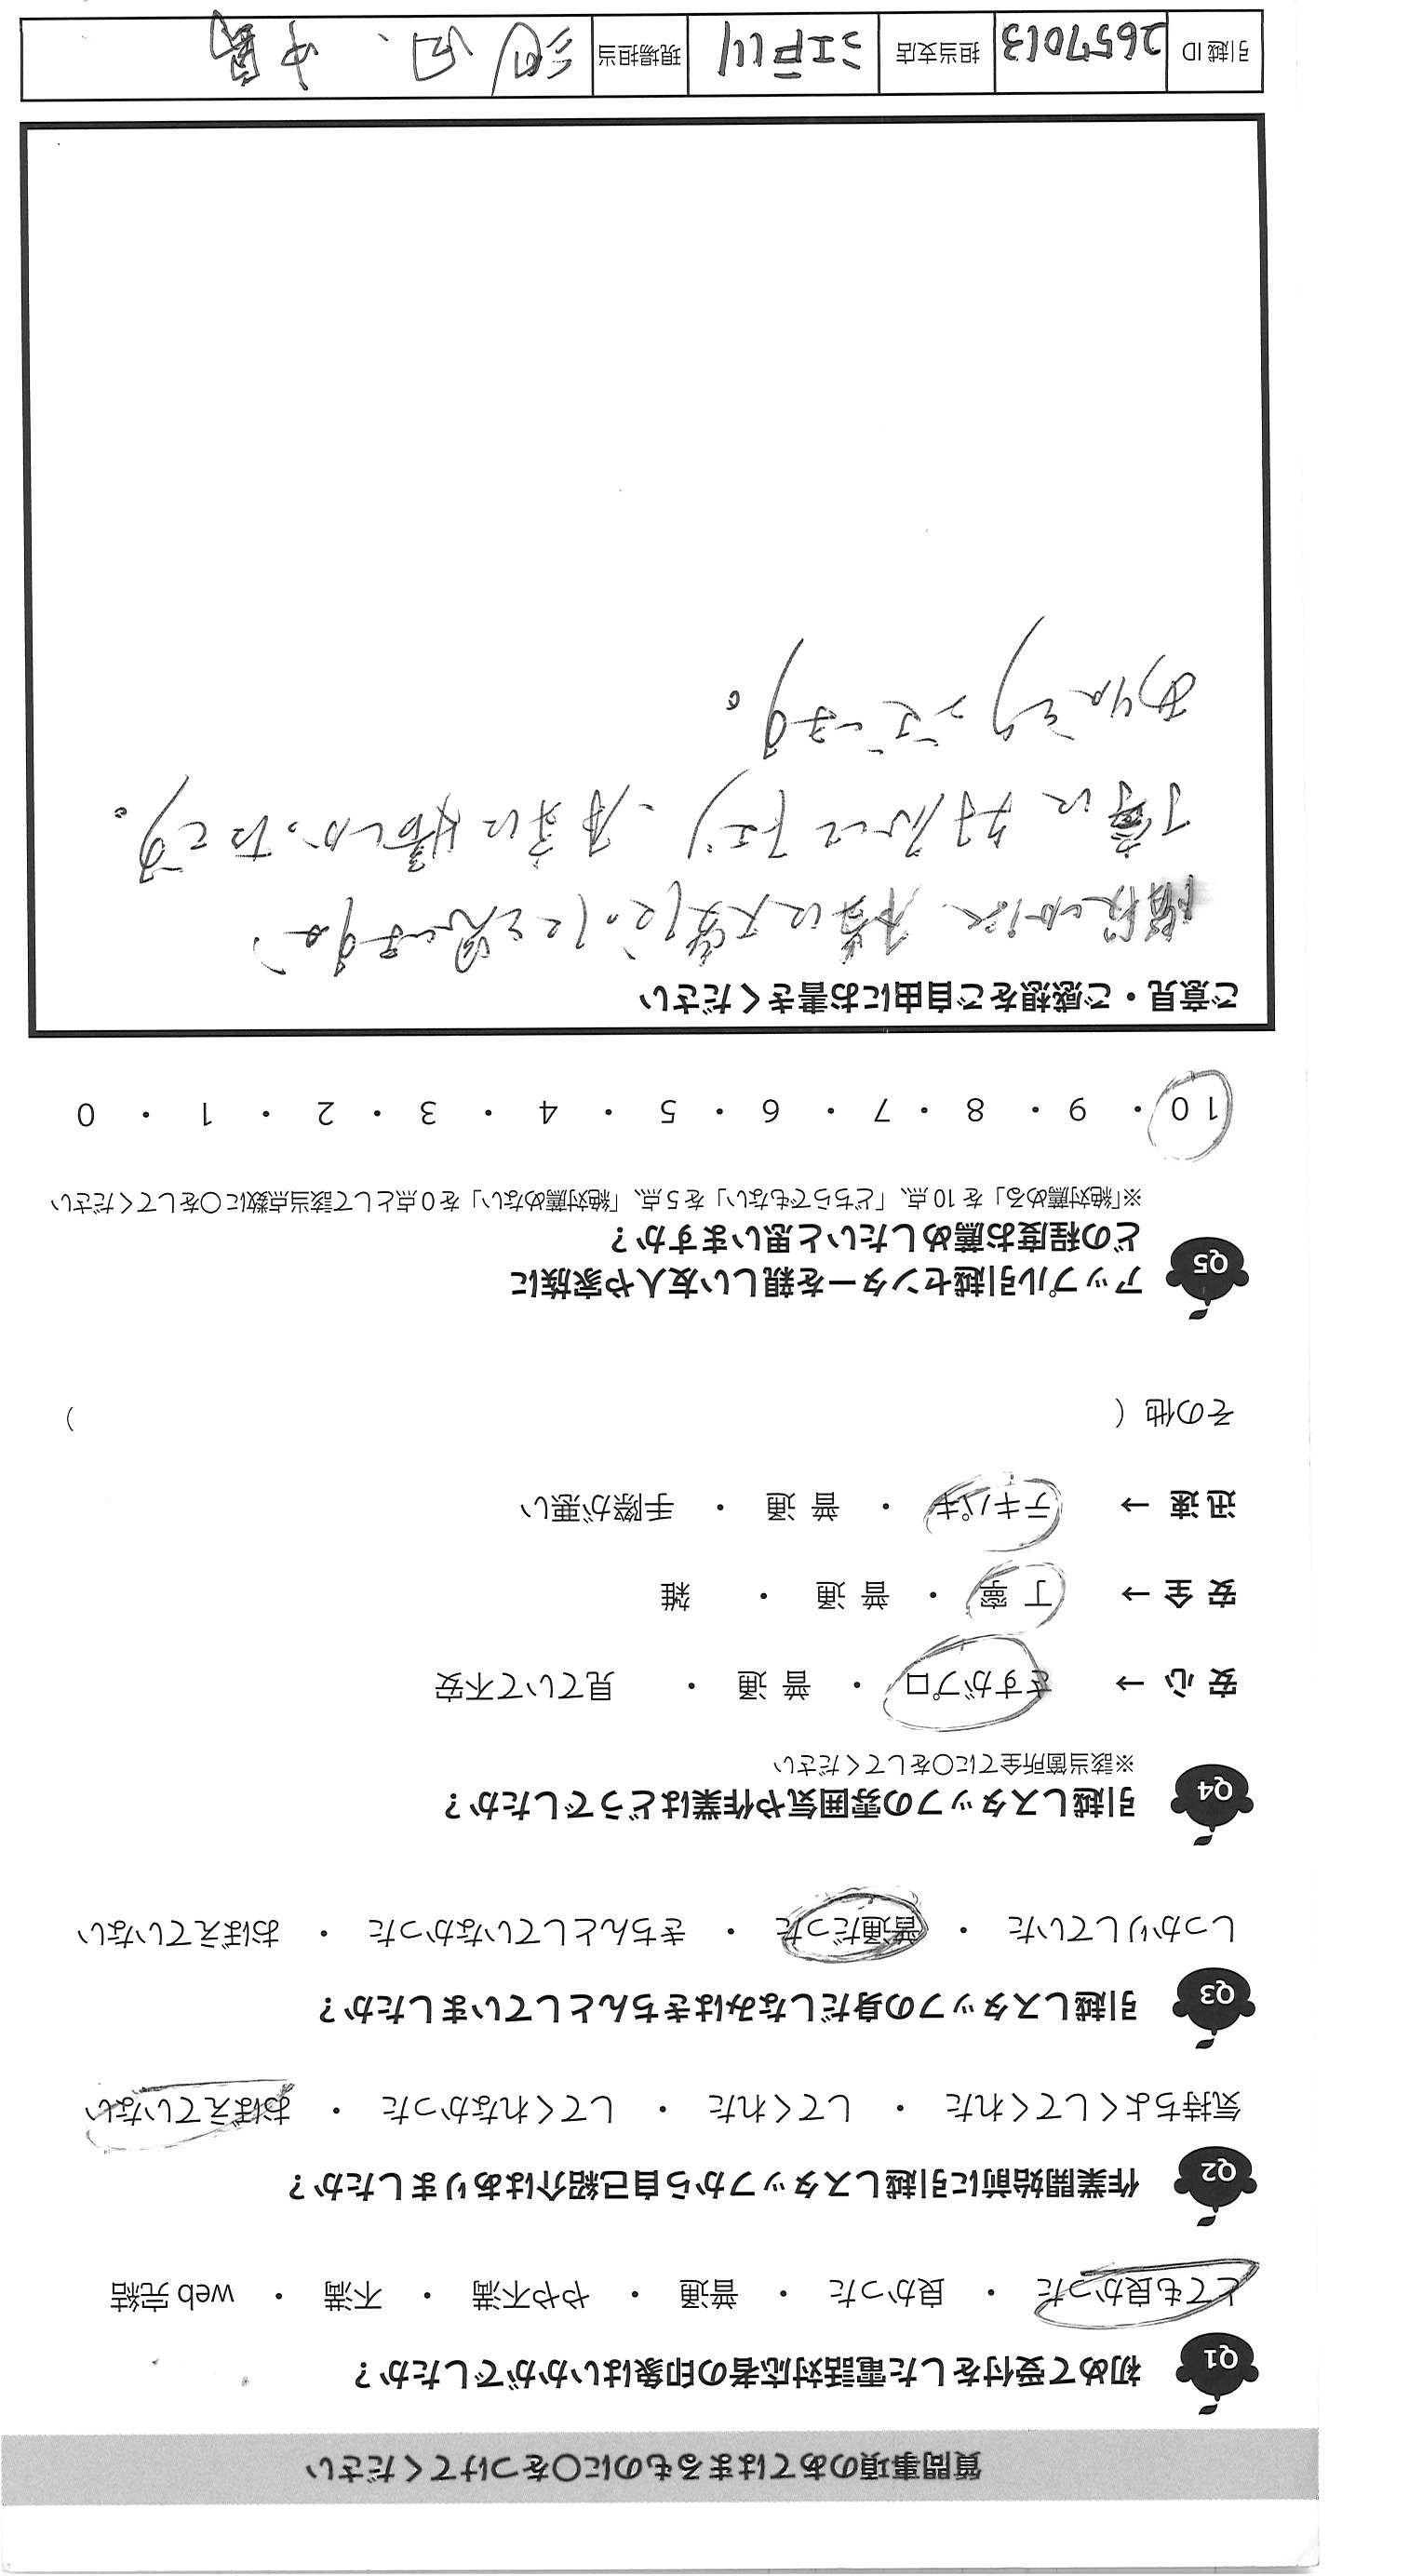 質問事項のあてはまるものに〇をつけてください
Q1 初めて受付をした電話対応者の印象はいかがでしたか？
とても良かった ・ 良かった ・ 普通 ・ やや不満 ・ 不満 ・ web 完結
Q2 作業開始前に引越しスタッフから自己紹介はありましたか？
気持ちよくしてくれた ・ してくれた ・ してくれなかった ・ おぼえていない
Q3 引越しスタッフの身だしなみはきちんとしていましたか？
しっかりしていた ・ 普通だった ・ きちんとしていなかった ・ おぼえていない
Q4 引越しスタッフの雰囲気や作業はどうでしたか？
※該当箇所全てに〇をしてください
安 心 → さすがプロ ・ 普 通 ・ 見ていて不安
安 全 → 丁 寧 ・ 普 通 ・ 雑
迅 速 → テキパキ ・ 普 通 ・ 手際が悪い
その他（ ）
Q5 アップル引越センターを親しい友人や家族に
どの程度お薦めしたいと思いますか？
※「絶対薦める」を 10 点、「どちらでもない」を 5 点、「絶対薦めない」を 0 点として該当点数に〇をしてください
10 ・ 9 ・ 8 ・ 7 ・ 6 ・ 5 ・ 4 ・ 3 ・ 2 ・ 1 ・ 0
ご意見・ご感想をご自由にお書きください
階段 大変 思いますが、
丁寧に対応して下さり、本当に嬉しかったです。
ありがとうございます。
引越 ID 2657013 担当支店 江戸川 現場担当 、中島